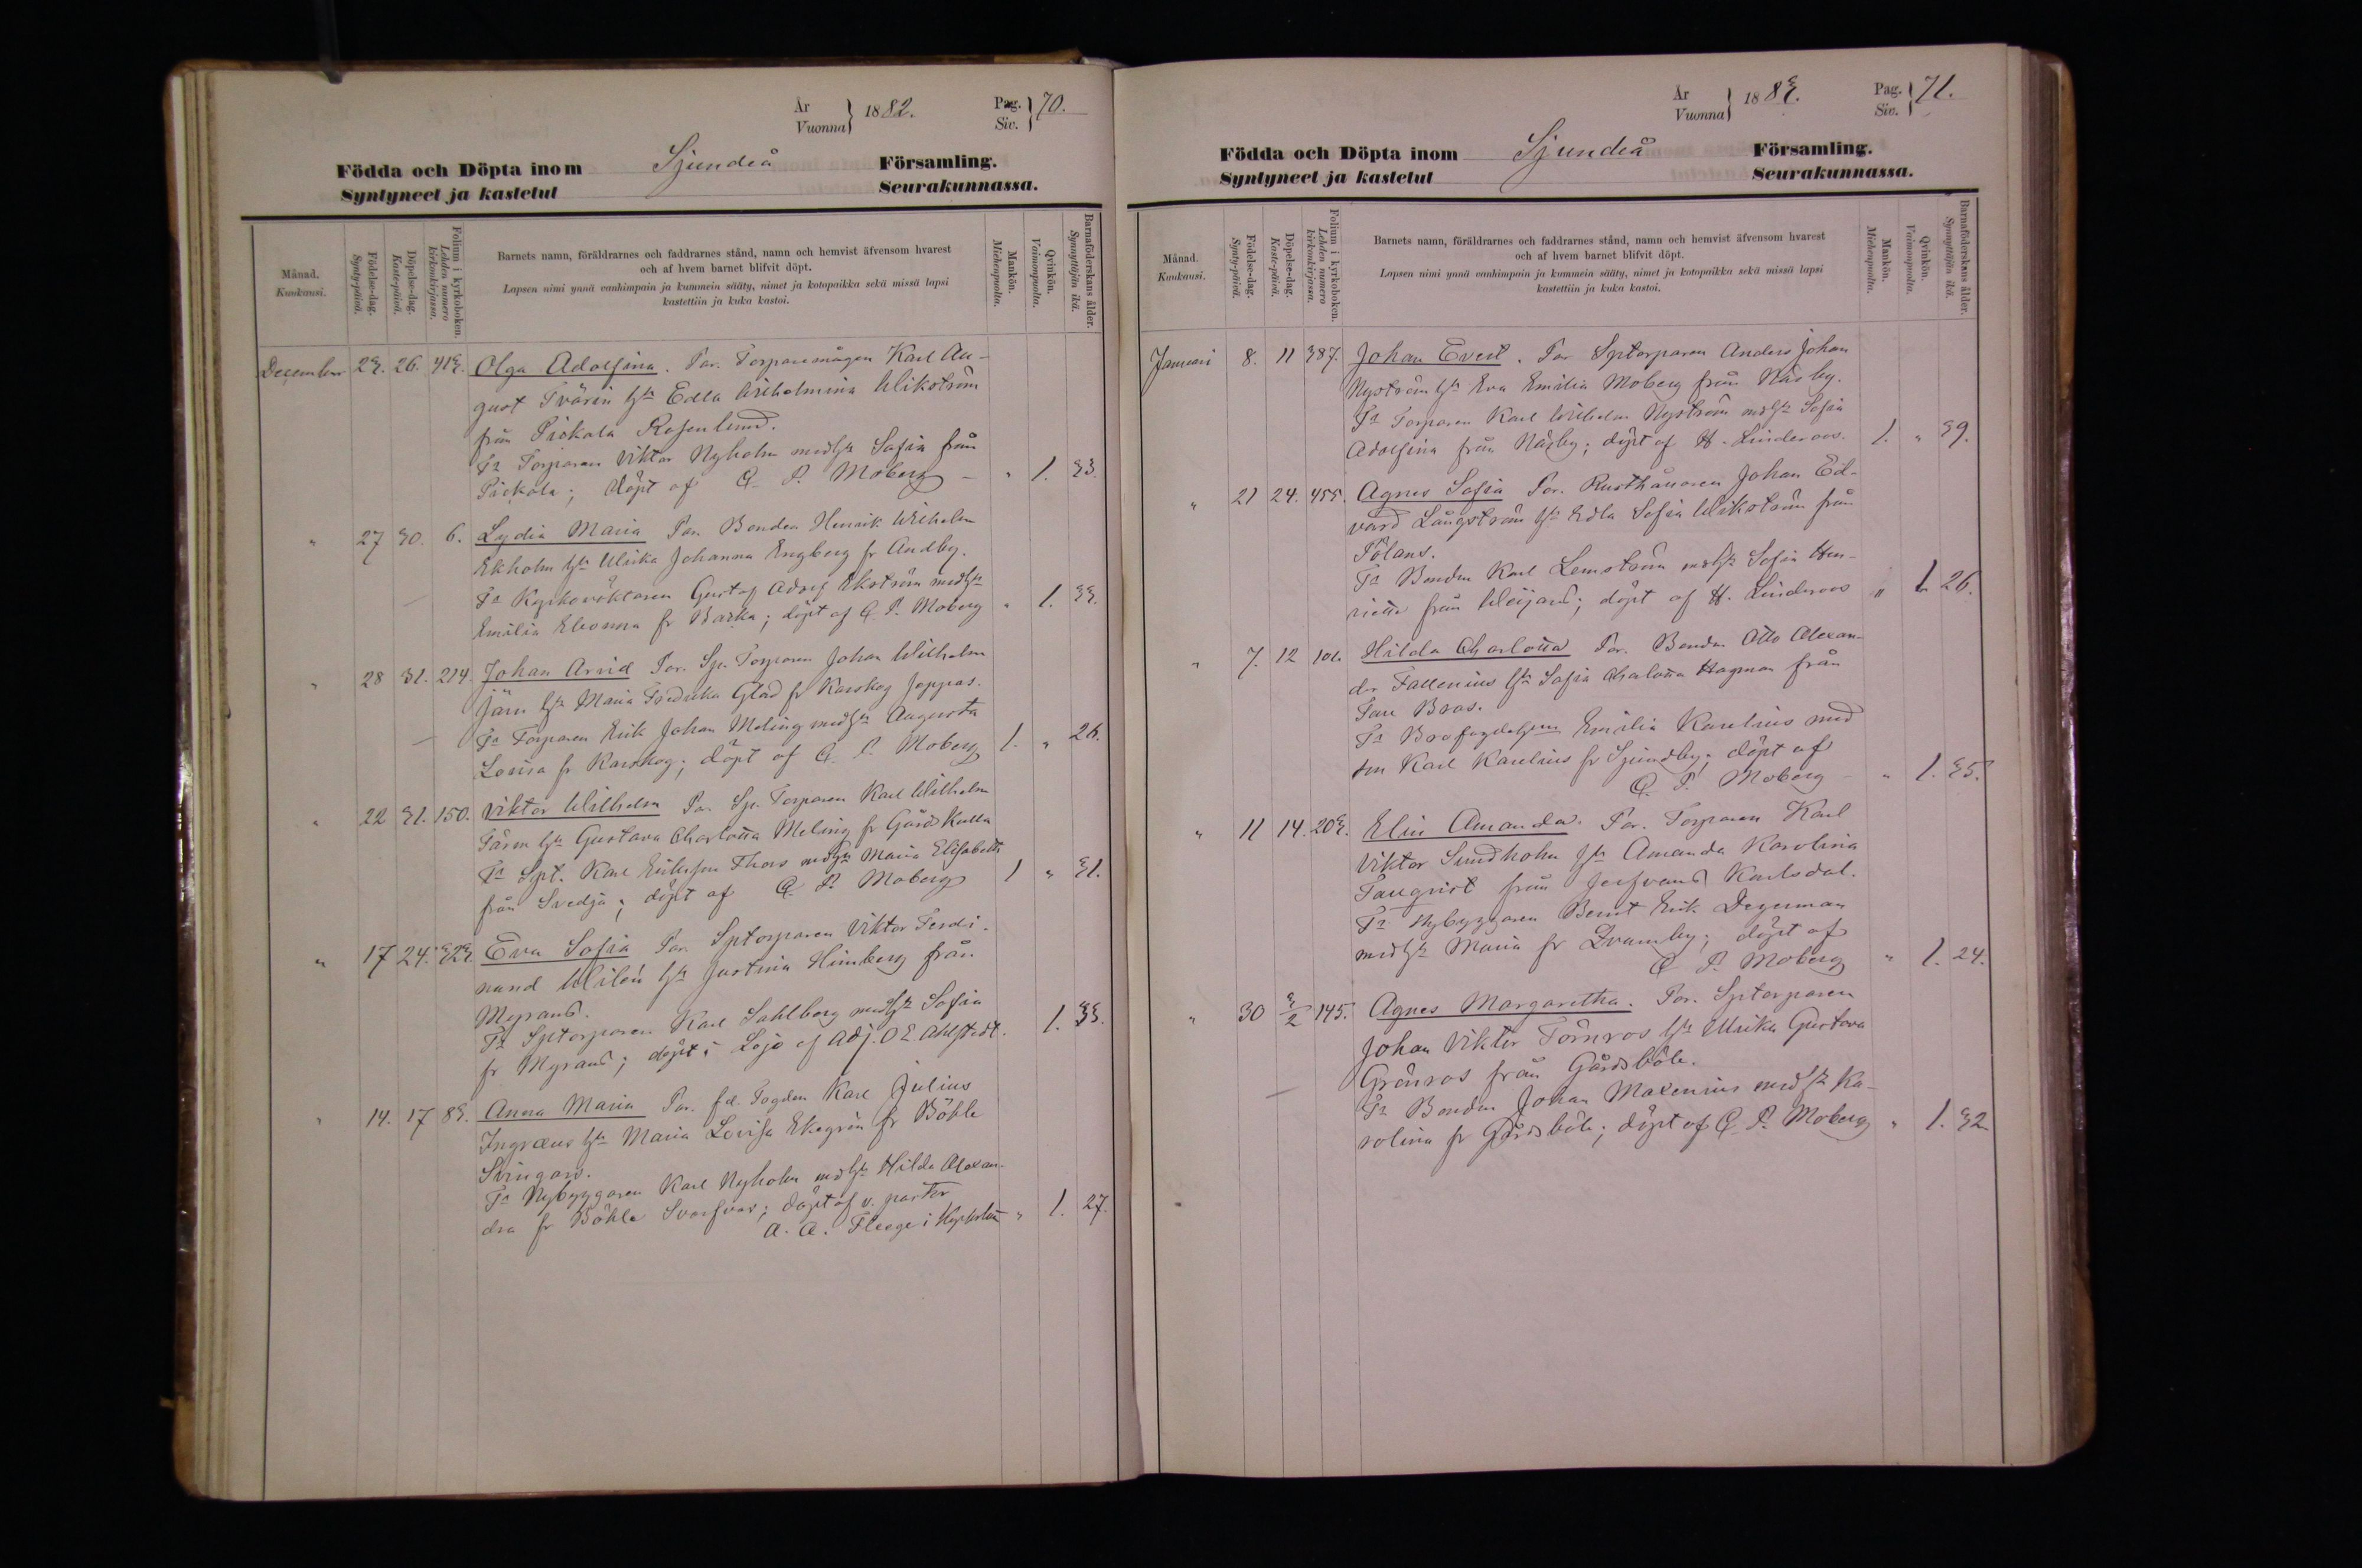 År
Vuonna
1882.
Pag.
Siv.
70.
Födda och Döpta inom Sjundeå Församling.
Syntyneet ja kastetut Seurakunnassa.
Månad.
Kuukausi.
Födelse-dag.
Synty-päivä.
Döpelse-dag.
Kaste-päivä.
Folium i kyrkoboken.
Lehden numero
kirkonkirjassa.
Barnets namn, föräldrarnes och faddrarnes stånd, namn och hemvist äfvensom hvarest
och af hvem barnet blifvit döpt.
Lapsen nimi ynnä vanhimpain ja kummein sääty, nimet ja kotopaikka sekä missä lapsi
kastettiin ja kuka kastoi.
Mankön.
Miehenpuolta.
Qvinkön.
Vaimonpuolta.
Barnaföderskans ålder.
Synnyttäjän ikä.
December 23. 26. 413. Olga Adolfina. Par. Torparemågen Karl Au-
gust Tvärin hu Edla Wilhelmina Wikström
från Pickala Rosenlund.
Fr Torparen Viktor Nyholm med hu Sofia från
Pickala; döpt af C. P. Moberg – " 1. 33.
" 27 30. 6. Lydia Maria Par. Bonden Henrik Wilhelm
Ekholm hu Ulrika Johanna Engberg fr Andby.
Fr Kyrkovärktaren Gustaf Adolf Ekström med hu
Emilia Eleonora fr Backa; döpt af C. P. Moberg " 1. 33.
" 28 31. 214. Johan Arvid Par. Sp. Torparen Johan Wilhelm
Järn hu Maria Fredrika Glad fr Karskog Jeppas.
Fr Torparen Erik Johan Meling med hu Augusta
Lovisa fr Karskog; döpt af C. P. Moberg 1. " 26.
" 22 31. 150. Viktor Wilhelm Par. Sp. Torparen Karl Wilhelm
Färm hu Gustava Charlotta Meling fr Gårdskulla
Fr Spt. Karl Eriksson Thors med hu Maria Elisabeth
från Svedja; döpt af C. P. Moberg 1 " 31.
" 17 24. 323. Eva Sofia Par. Sptorparen Viktor Ferdi-
nand Wilén hu Justina Himberg från
Myrans.
Fr Sptorparen Karl Sahlberg med hu Sofia
fr Myrans; döpt i Lojo af Adj. O E. Ahlstedt. 1. 33.
" 14. 17 83. Anna Maria Par. fd. Fogden Karl Julius
Ingraeus hu Maria Lovisa Ekegrén fr Böhle
Svingars.
Fr Nybyggaren Karl Nyholm med hu Hilda Alexan-
dra fr Böhle Svarfvar; döpt af v. pastor
A. A. Fleege i Kyrkslätt " 1. 27.
År
Vuonna
1883.
Pag.
Siv.
71.
Födda och Döpta inom Sjundeå Församling.
Syntyneet ja kastetut Seurakunnassa.
Månad.
Kuukausi.
Födelse-dag.
Synty-päivä.
Döpelse-dag.
Kaste-päivä.
Folium i kyrkoboken.
Lehden numero
kirkonkirjassa.
Barnets namn, föräldrarnes och faddrarnes stånd, namn och hemvist äfvensom hvarest
och af hvem barnet blifvit döpt.
Lapsen nimi ynnä vanhimpain ja kummein sääty, nimet ja kotopaikka sekä missä lapsi
kastettiin ja kuka kastoi.
Mankön.
Miehenpuolta.
Qvinkön.
Vaimonpuolta.
Barnaföderskans ålder.
Synnyttäjän ikä.
Januari 8. 11 387. Johan Evert. Par Sptorparen Anders Johan
Nyström hu Eva Emilia Moberg från Näsby.
Fr Torparen Karl Wilhelm Nyström med hu Sofia
Adolfina från Näsby; döpt af H. Linderoos. 1. " 39.
" 21 24. 455. Agnes Sofia Par. Rusthållaren Johan Ed-
vard Långström hu Edla Sofia Wikström från
Pölans.
Fr Bonden Karl Lemström med hu Sofia Hen-
riette från Weijans; döpt af H. Linderoos " 1. 26.
" 7. 12 101. Hilda Charlotta Par. Bonden Otto Alexan-
der Fallenius hu Sofia Charlotta Hagman från
Tare Bros.
Fr Brofogdehjon Emilia Karelius med
son Karl Karelius fr Sjundby; döpt af
C. P. Moberg – " 1. 35.
" 11 14. 203. Elin Amanda. Par. Torparen Karl
Viktor Sundholm hu Amanda Karolina
Tauqvist från Jerfvans Karlsdal.
Fr Nybyggaren Bernt Erik Degerman
med hu Maria fr Qvarnby; döpt af
C P. Moberg " 1. 24.
" 30 3/2 145. Agnes Margaretha. Par. Sptorparen
Johan Viktor Törnros hu Ulrika Gustava
Grönros från Gårdsböle.
Fr Bonden Johan Maxenius med hu Ka-
rolina fr Gårdsböle; döpt af C. P. Moberg " 1. 32.